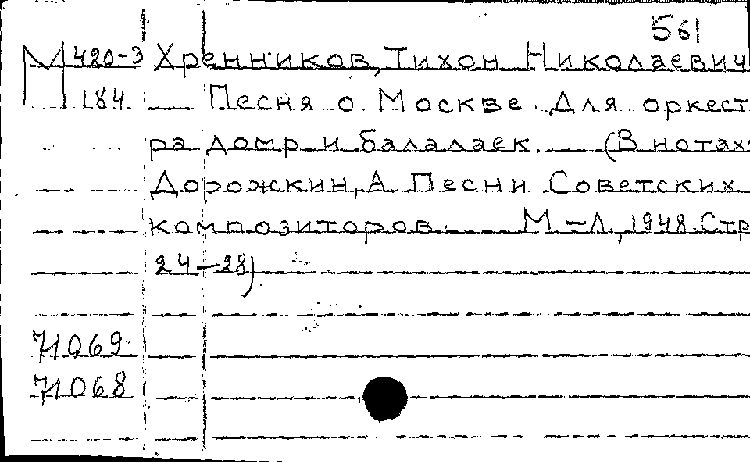 561
М 420-3 Хренников, Тихон Николаевич
184 Песня о Москве. Для оркест
ра домр и балалаек. — (В нотах:
Дорожкин, А. Песни Советских
композиторов. М.-Л., 1948. Стр
24-28)
71069
71068